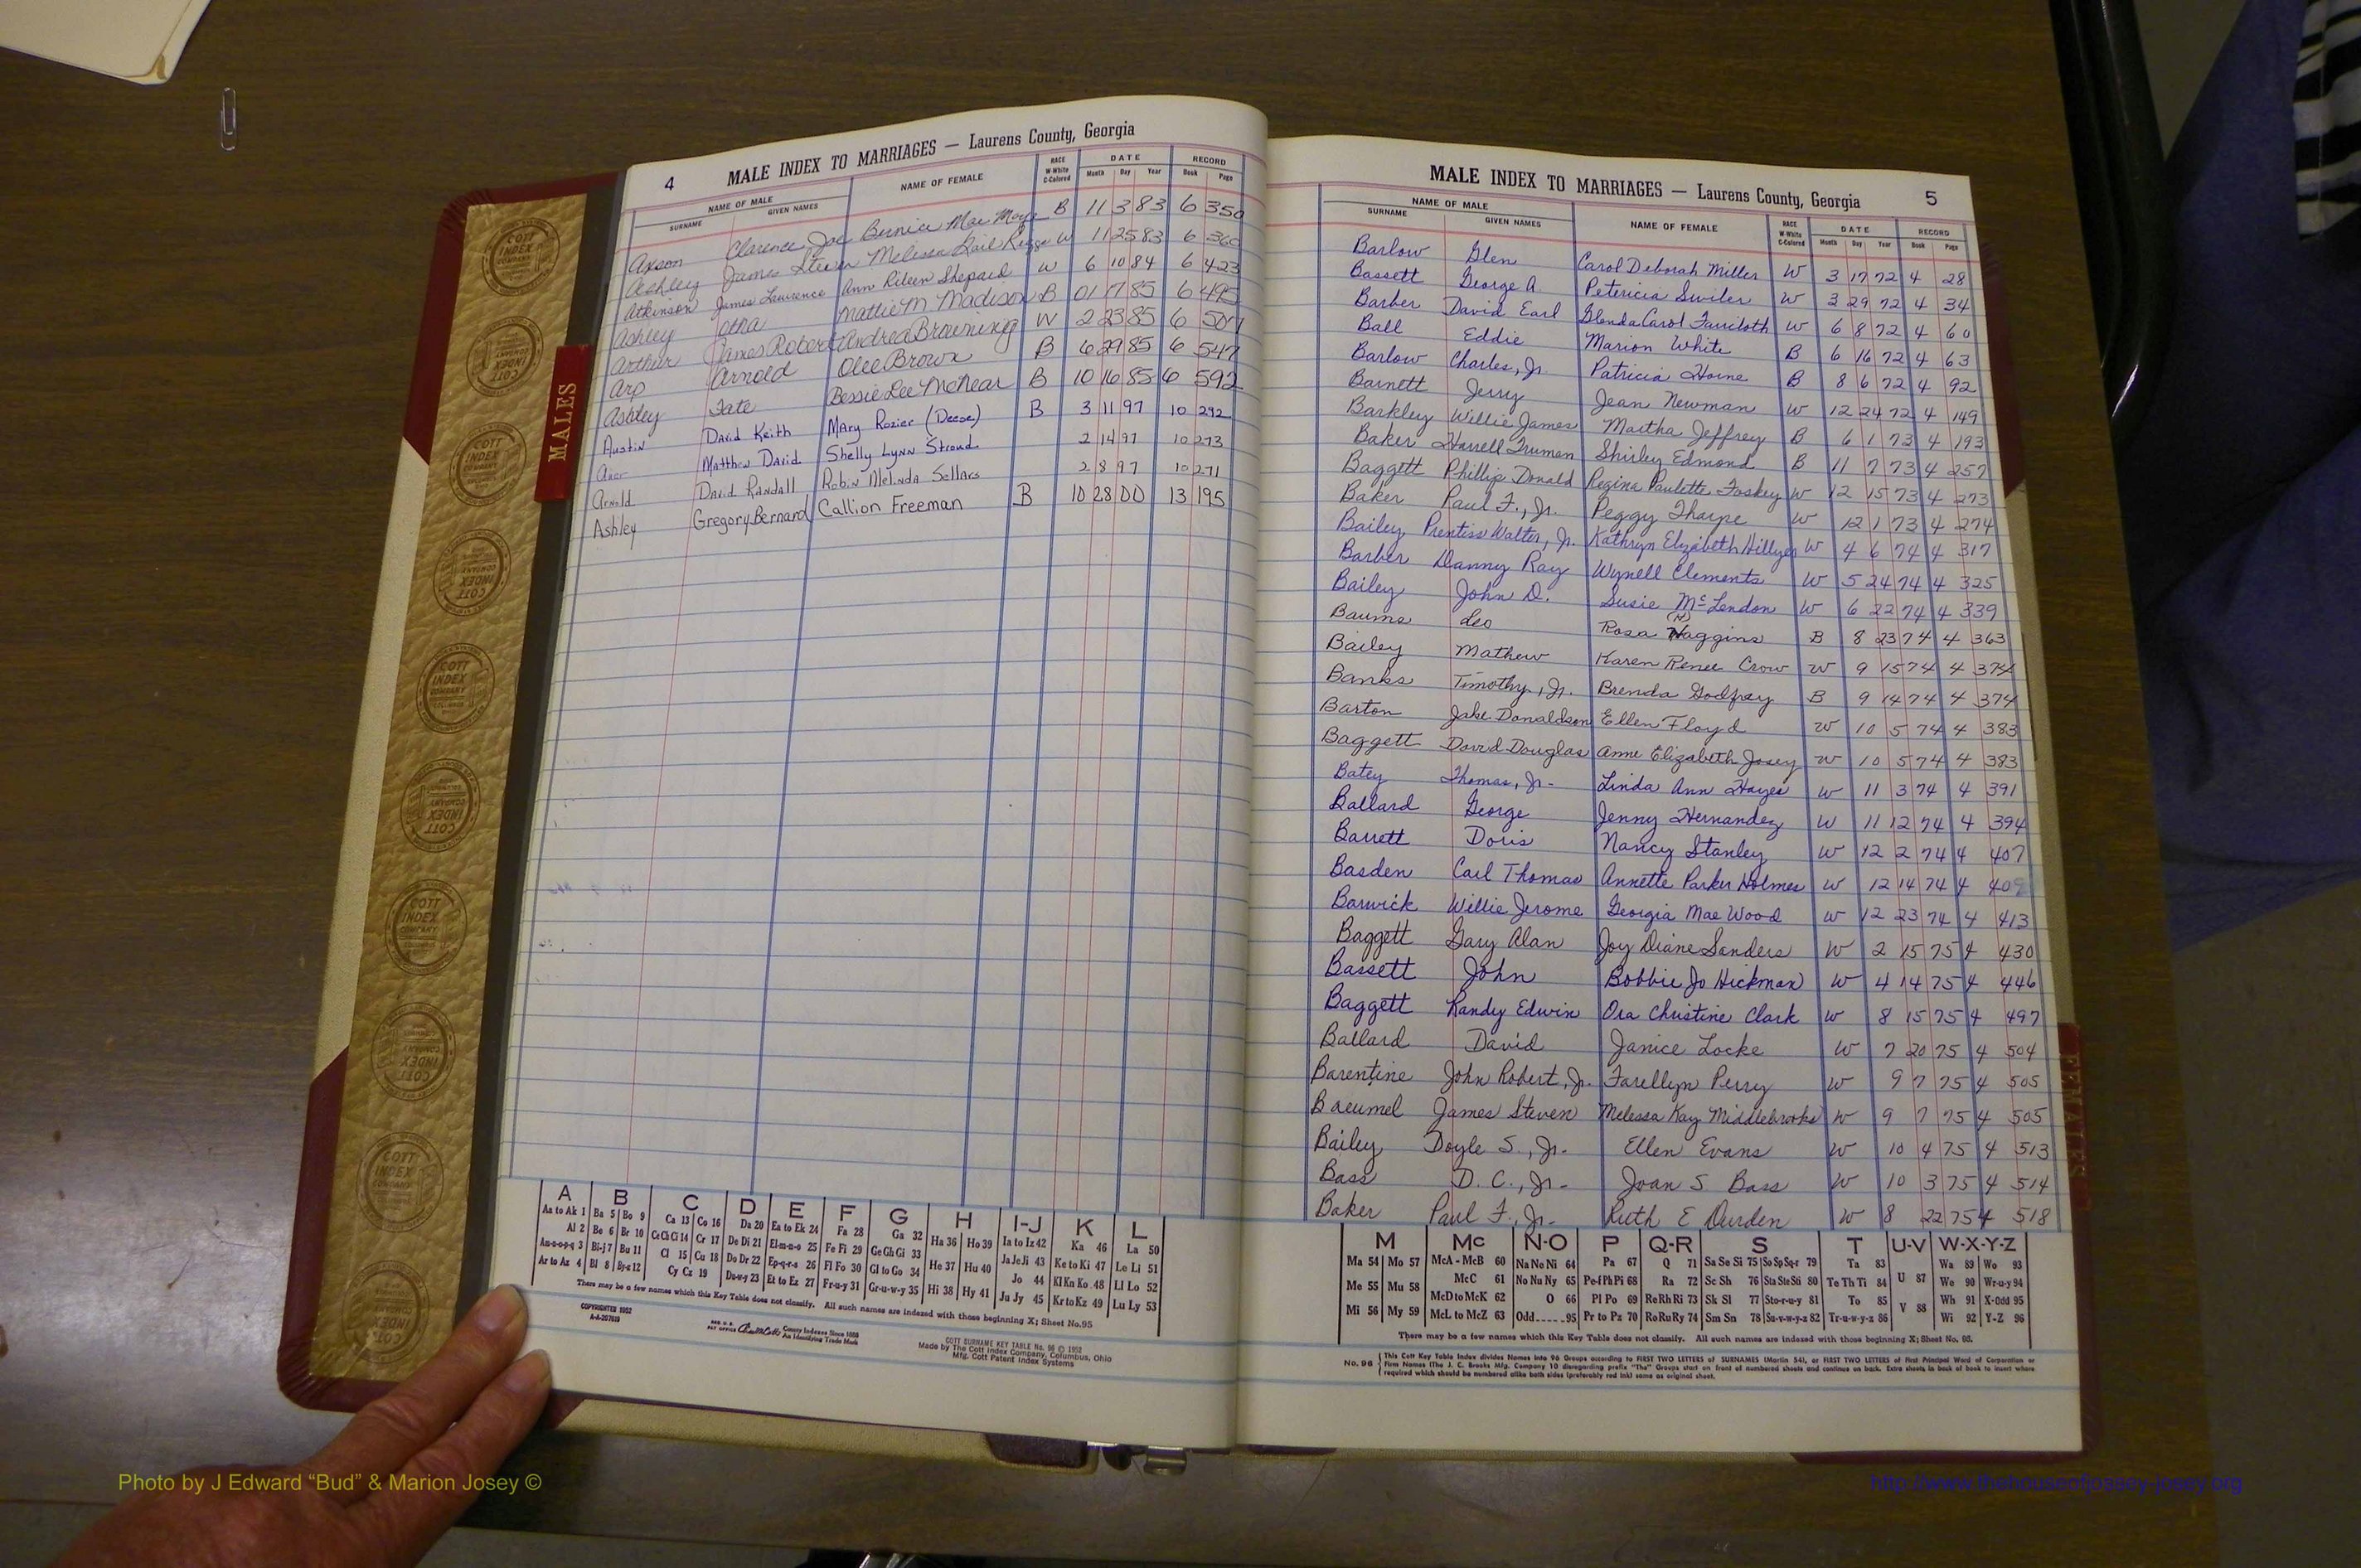 4 MALE INDEX TO MARRIAGES — Laurens County, Georgia
NAME OF MALE NAME OF FEMALE RACE W-White C-Colored DATE RECORD
SURNAME GIVEN NAMES Month Day Year Book Page
Axson Clarence Joe Bernice Mae Mays B 11 3 83 6 350
Ashley James Steven Melissa Gail W 11 25 83 6 360
Atkinson James Lawrence Ann Eileen Shepard W 6 10 84 6 423
Ashley Otha Mattie M. Madison B 01 17 85 6 495
Arthur James Robert Andrea Browning W 2 23 85 6 507
Arp Arnold Olee Brown B 6 29 85 6 547
Ashley Tate Bessie Lee McNear B 10 16 85 6 592
Austin David Keith Mary Rozier (Deese) B 3 11 97 10 292
Matthew David Shelly Lynn Stroud 2 14 97 10 273
Arnold David Randall Robin Melinda Sellars 2 8 97 10 271
Ashley Gregory Bernard Callion Freeman B 10 28 00 13 195
MALES
A B C D E F G H I-J K L
Aa to Ak 1 Ba 5 Bo 9 Ca 13 Co 16 Da 20 Ea to Ek 24 Fa 28 Ga 32 Ha 36 Ho 39 Ia to Iz 42 Ka 46 La 50
Al 2 Be 6 Br 10 Ce Ch Ci 14 Cr 17 De Di 21 El-m-n-o 25 Fe Fi 29 Ge Gh Gi 33 He 37 Hu 40 Ja Je Ji 43 Ke to Ki 47 Le Li 51
An-o-p-q 3 Bi-j 7 Bu 11 Cl 15 Cu 18 Do Dr 22 Ep-q-r-s 26 Fl Fo 30 Gl to Go 34 Hi 38 Hy 41 Jo 44 Kl Kn Ko 48 Ll Lo 52
Ar to Az 4 Bl 8 By-z 12 Cy Cz 19 Du-w-y 23 Et to Ez 27 Fr-u-y 31 Gr-u-w-y 35 Ju Jy 45 Kr to Kz 49 Lu Ly 53
There may be a few names which this Key Table does not classify. All such names are indexed with those beginning X; Sheet No. 95
COPYRIGHTED 1952
A-A-207619
County Indexes Since 1888
An Identifying Trade Mark
COTT SURNAME KEY TABLE No. 96 © 1952
Made by The Cott Index Company, Columbus, Ohio
Mfg. Cott Patent Index Systems
MALE INDEX TO MARRIAGES — Laurens County, Georgia 5
NAME OF MALE NAME OF FEMALE RACE W-White C-Colored DATE RECORD
SURNAME GIVEN NAMES Month Day Year Book Page
Barlow Glen Carol Deborah Miller W 3 17 72 4 28
Bassett George A. Petericia Swiler W 3 29 72 4 34
Barber David Earl Glenda Carol Fairiloth W 6 8 72 4 60
Ball Eddie Marion White B 6 16 72 4 63
Barlow Charles, Jr. Patricia Horne B 8 6 72 4 92
Barnett Jerry Jean Newman W 12 24 72 4 149
Barkley Willie James Martha Jeffrey B 6 1 73 4 193
Baker Harrell Truman Shirley Edmond B 11 7 73 4 257
Baggett Phillip Donald Regina Paulette Foskey W 12 15 73 4 273
Baker Paul F., Jr. Peggy Tharpe W 12 1 73 4 274
Bailey Prentiss Walter, Jr. Kathryn Elizabeth Hillyer W 4 6 74 4 317
Barber Danny Ray Wynell Clements W 5 24 74 4 325
Bailey John D. Susie McLendon W 6 22 74 4 339
Baums Leo Rosa Haggins (H) B 8 23 74 4 363
Bailey Mathew Karen Renee Crow W 9 15 74 4 374
Banks Timothy, Jr. Brenda Godfray B 9 14 74 4 374
Barton Jake Donaldson Ellen Floyd W 10 5 74 4 383
Baggett David Douglas Anne Elizabeth Josey W 10 5 74 4 383
Batey Thomas, Jr. Linda Ann Hayes W 11 3 74 4 391
Ballard George Jenny Hernandez W 11 12 74 4 394
Barrett Doris Nancy Stanley W 12 2 74 4 407
Basden Carl Thomas Annette Parker Holmes W 12 14 74 4 409
Barwick Willie Jerome Georgia Mae Wood W 12 23 74 4 413
Baggett Gary Alan Joy Diane Sanders W 2 15 75 4 430
Bassett John Bobbie Jo Hickman W 4 14 75 4 446
Baggett Randy Edwin Ora Christine Clark W 8 15 75 4 497
Ballard David Janice Locke W 7 20 75 4 504
Barentine John Robert, Jr. Farellyn Perry W 9 7 75 4 505
Baeumel James Steven Melessa Kay Middlebrooks W 9 7 75 4 505
Bailey Doyle S., Jr. Ellen Evans W 10 4 75 4 513
Bass D. C., Jr. Joan S Bass W 10 3 75 4 514
Baker Paul F., Jr. Ruth E Durden W 8 22 75 4 518
FEMALES
M Mc N-O P Q-R S T U-V W-X-Y-Z
Ma 54 Mo 57 McA - McB 60 Na Ne Ni 64 Pa 67 Q 71 Sa Se Si 75 So Sp Sq-r 79 Ta 83 U 87 Wa 89 Wo 93
Me 55 Mu 58 McC 61 No Nu Ny 65 Pe-f Ph Pi 68 Ra 72 Sc Sh 76 Sta Ste Sti 80 Te Th Ti 84 V 88 We 90 Wr-u-y 94
McD to McK 62 O 66 Pl Po 69 Re Rh Ri 73 Sk Sl 77 Sto-r-u-y 81 To 85 Wh 91 X-Odd 95
Mi 56 My 59 McL to McZ 63 Odd-----95 Pr to Pz 70 Ro Ru Ry 74 Sm Sn 78 Su-v-w-y-z 82 Tr-u-w-y-z 86 Wi 92 Y-Z 96
There may be a few names which this Key Table does not classify. All such names are indexed with those beginning X; Sheet No. 95.
No. 96 This Cott Key Table Index divides Names into 96 Groups according to FIRST TWO LETTERS of SURNAMES (Martin 54), or FIRST TWO LETTERS of First Principal Word of Corporation or
Firm Names (The J. C. Brooks Mfg. Company 10 disregarding prefix "The" Groups start on front of numbered sheets and continue on back. Extra sheets in back of book to insert where
required which should be numbered alike both sides (preferably red ink) same as original sheet.
Photo by J Edward “Bud” & Marion Josey ©
http://www.thehouseofjossey-josey.org